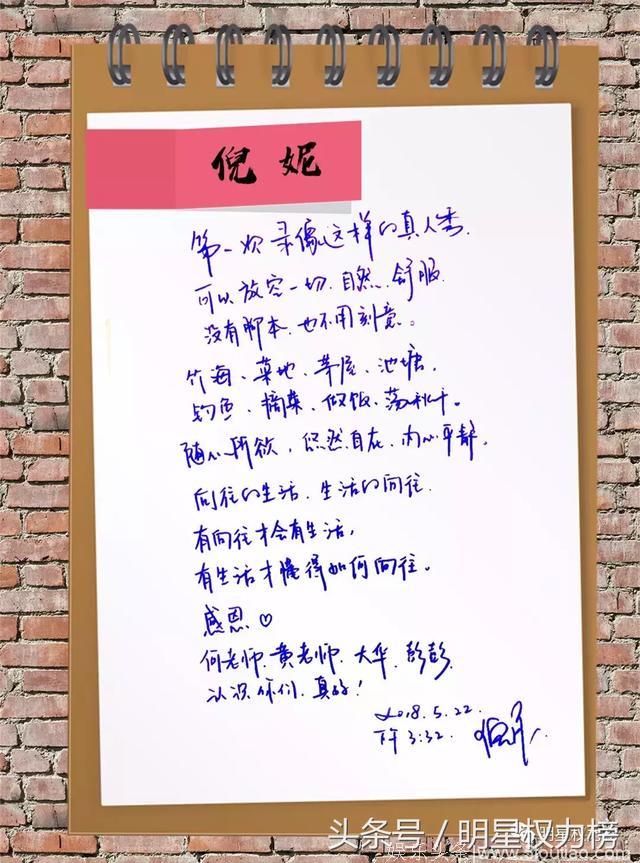 倪妮
第一次录像这样的真人秀.
可以放空一切.自然.舒服.
没有脚本.也不用刻意。
竹海、菜地、茅屋、池塘.
钓鱼、摘菜、做饭、荡秋千。
随心所欲、悠然自在.内心平静.
向往的生活.生活的向往.
有向往才会有生活,
有生活才懂得如何向往。
感恩♡
何老师.黄老师.大华.彭彭.
认识你们.真好!
2018.5.22.
下午3:32.
倪妮
头条号/明星权力榜